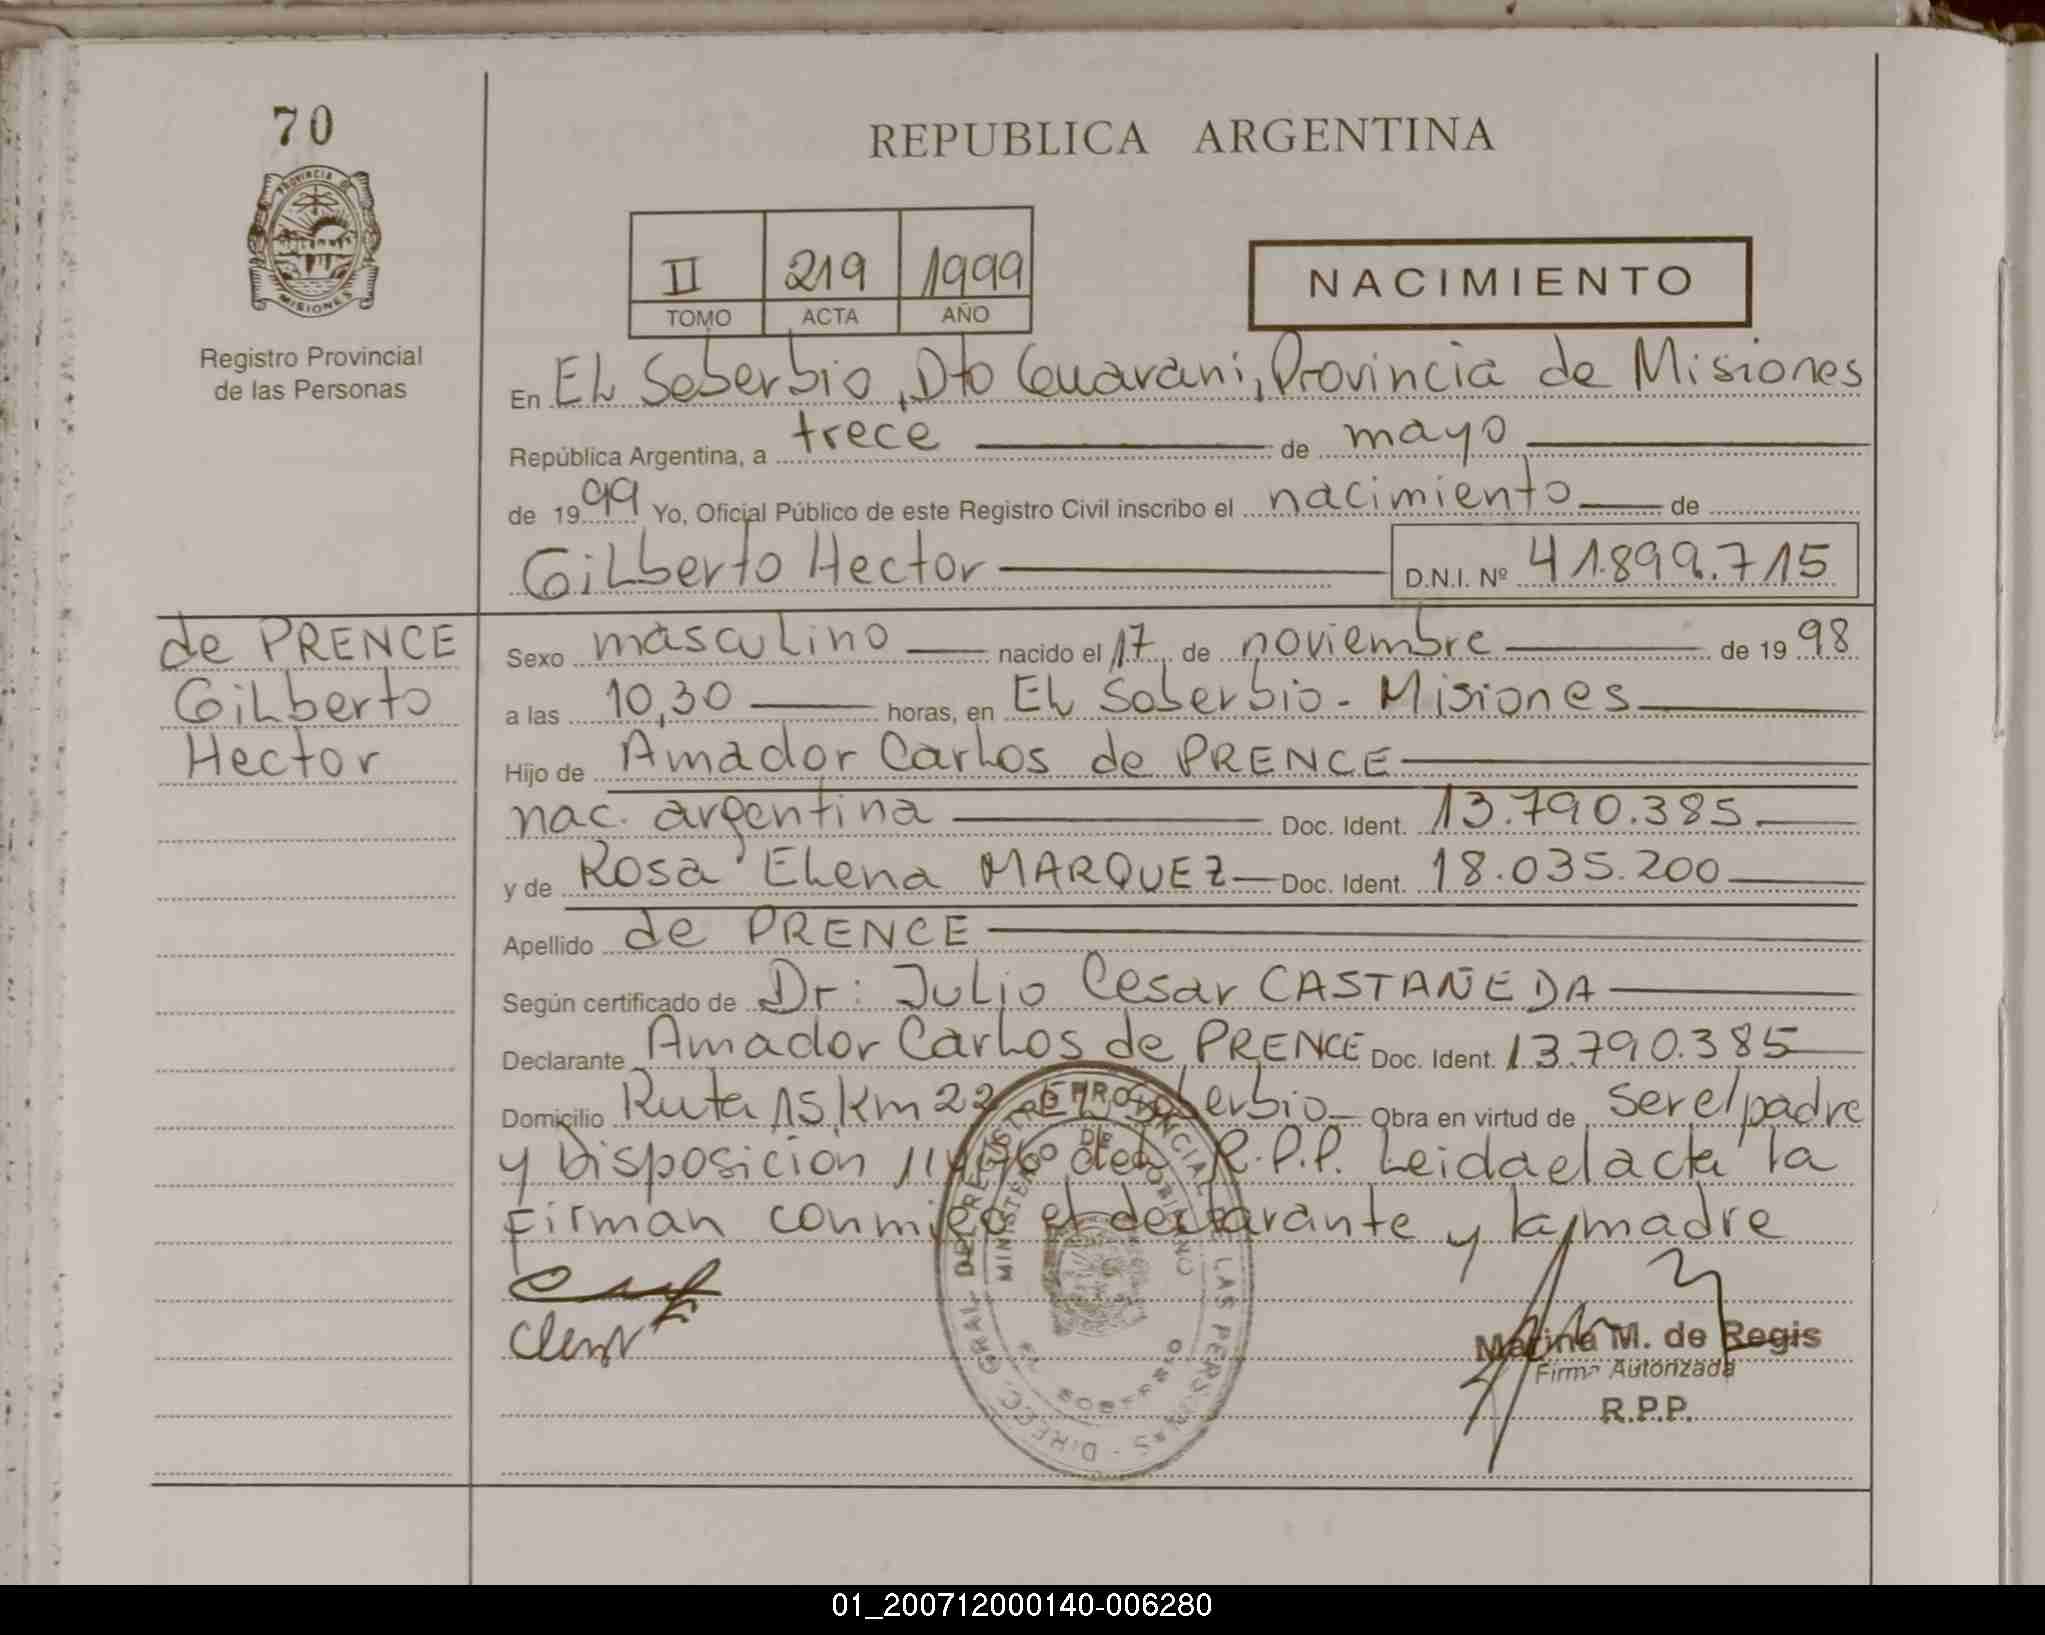 70
PROVINCIA DE
MISIONES
Registro Provincial
de las Personas
REPUBLICA ARGENTINA
II 219 1999
TOMO ACTA AÑO
NACIMIENTO
En EL Soberbio, Dto Guarani, Provincia de Misiones
República Argentina, a trece de mayo
de 1999 Yo, Oficial Público de este Registro Civil inscribo el nacimiento de
Gilberto Hector D.N.I. Nº 41.899.715
de PRENCE
Gilberto
Hector
Sexo masculino nacido el 17 de noviembre de 1998
a las 10,30 horas, en EL Soberbio - Misiones
Hijo de Amador Carlos de PRENCE
nac. argentina Doc. Ident. 13.790.385
y de Rosa Elena MARQUEZ Doc. Ident. 18.035.200
Apellido de PRENCE
Según certificado de Dr: Julio Cesar CASTAÑEDA
Declarante Amador Carlos de PRENCE Doc. Ident. 13.790.385
Domicilio Ruta 15 Km 22 EL Soberbio Obra en virtud de ser el padre
y Disposición del R.P.P. Leida el acta la
firman conmigo el declarante y la madre
DIREC. GRAL. DEL REGISTRO PROVINCIAL DE LAS PERSONAS
MINISTERIO DE GOBIERNO
EL SOBERBIO
Marina M. de Regis
Firma Autorizada
R.P.P.
01_200712000140-006280